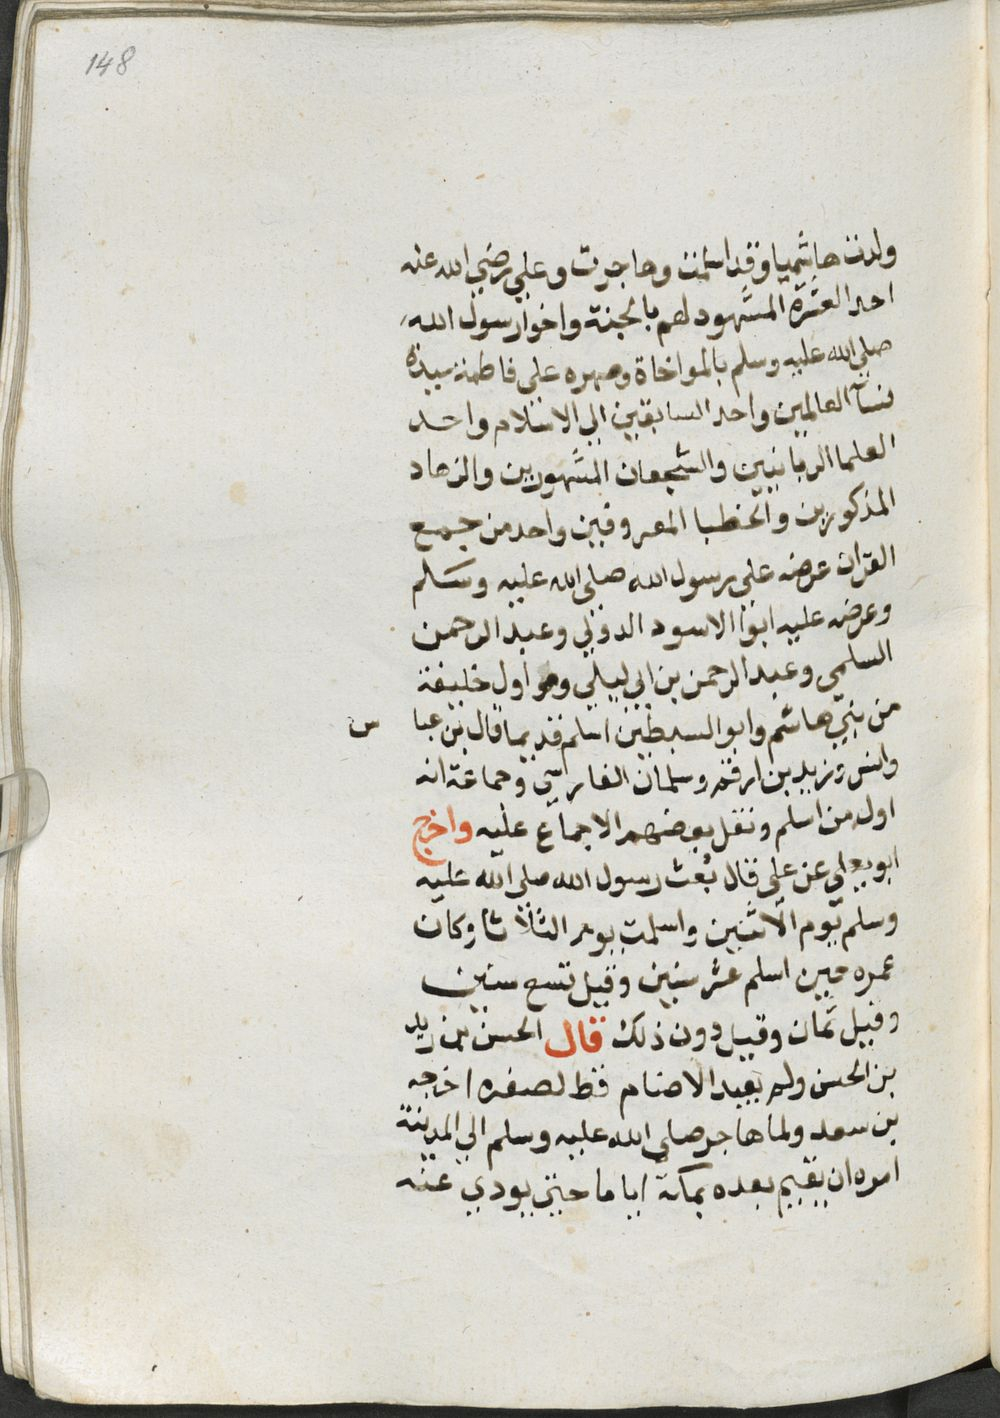 148
ولدت هاشميا وقد اسلمت وهاجرت وعلي رضي الله عنه
احد العشرة المشهود لهم بالجنة واخوا رسول الله
صلي الله عليه وسلم بالمواخاة وصهره على فاطمة سيدة
نسآ العالمين واحد السابقين الي الاسلام واحد
العلما الربانيين والشجعان المشهورين والزهاد
المذكورين والخطبا المعروفين واحد من جمع
القران عرضه على رسول الله صلى الله عليه وسلم
وعرض عليه ابوا الاسود الدولي وعبد الرحمن
السلمى وعبد الرحمن بن ابي ليلي وهو اول خليفة
من بني هاشم وابو السبطين اسلم قديما قال بن عبا س
وانس وزيد بن ارقم وسلمان الفارسي وجماعة انه
اول من اسلم ونقل بعضهم الاجماع عليه واخرج
ابو يعلي عن علي قال بُعث رسول الله صلى الله عليه
وسلم يوم الاثنين واسلمت يوم الثلاثا وكان
عمره حين اسلم عشر سنين وقيل تسع سنين
وقيل ثمان وقيل دون ذلك قال الحسن بن زيد
بن الحسن ولم يعبد الاصنام قط لصغره اخرجه
بن سعد ولما هاجر صلى الله عليه وسلم الي المدينة
امره ان يقيم بعده بمكة اياما حتي يودي عنه